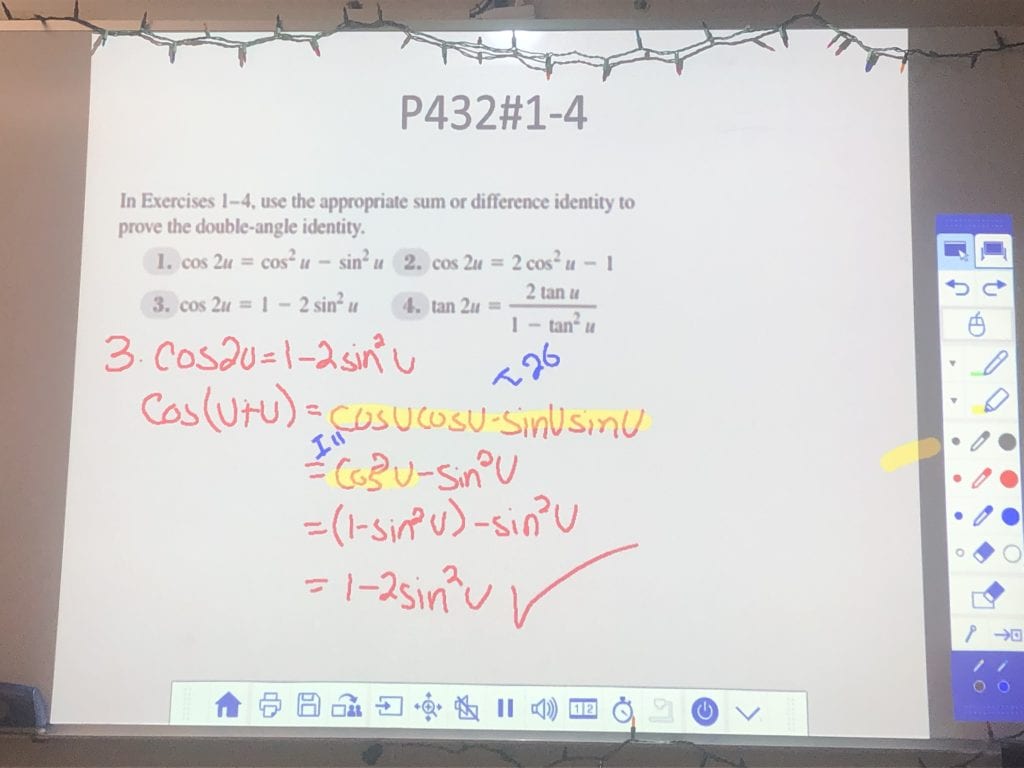 P432#1-4
In Exercises 1–4, use the appropriate sum or difference identity to
prove the double-angle identity.
1. cos 2u = cos² u − sin² u 2. cos 2u = 2 cos² u − 1
3. cos 2u = 1 − 2 sin² u 4. tan 2u = 2 tan u / 1 − tan² u
3. cos2u=1-2sin²u
I26
cos(u+u) = cosucosu-sinusinu
I11
= cos²u-sin²u
=(1-sin²u)-sin²u
= 1-2sin²u ✓
1 2